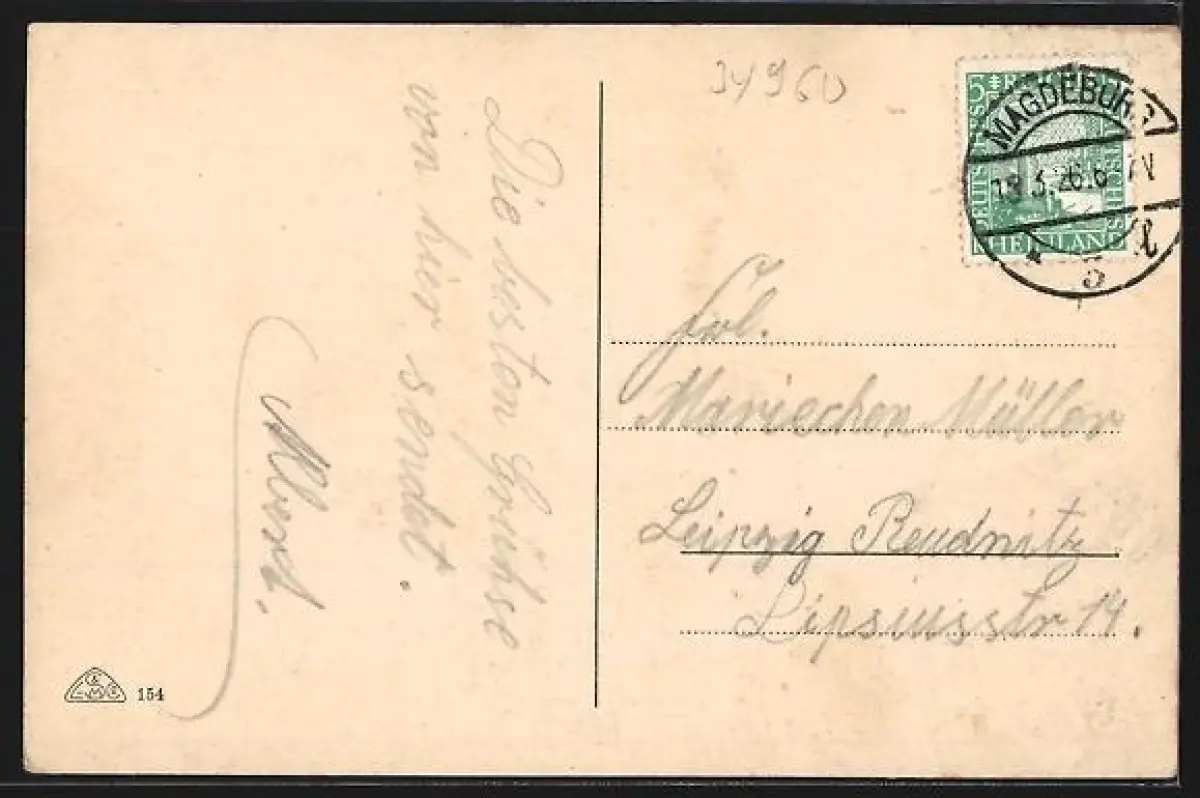 34960
Die besten Grühse
von hier sendet.
Albert.
Frl.
Mariechen Müller
Leipzig Reudnitz
Lipsiusstr 14.
MAGDEBURG
3.26.6
5
DEUTSCHES REICH
RHEINLAND
154